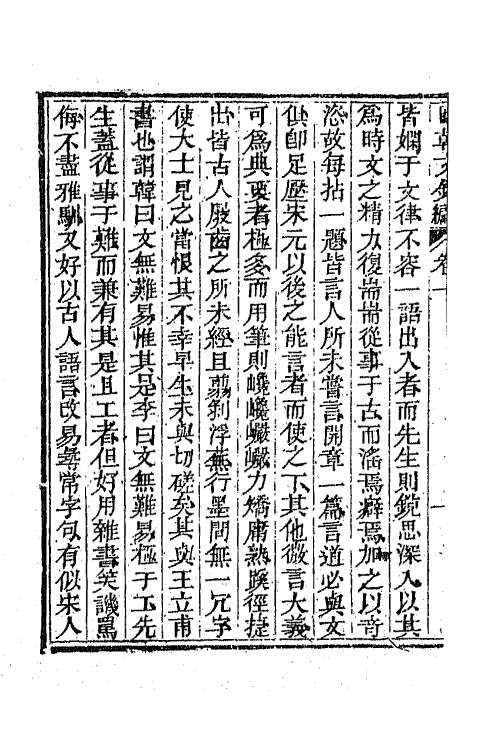 國朝文錄續編 卷一
皆嫻于文律不容一語出入者而先生則銳思深入以其
爲時文之精力復耑耑從事于古而滛焉癖焉加之以奇
恣故每拈一題皆言人所未嘗言開章一篇言道必與文
俱卽足壓宋元以後之能言者而使之下其他微言大義
可爲典要者極多而用筆則巉巉巖巖力矯庸熟蹊徑捷
出皆古人厰齒之所未經且剪剝浮蕪行墨間無一冗字
使大士見之當恨其不幸早生未與切磋矣其與王立甫
書也謂韓曰文無難易惟其是李曰文無難易極于工先
生蓋從事于難而兼有其是且工者但好用雜書笑譏罵
侮不盡雅馴又好以古人語言改易尋常字句有似宋人